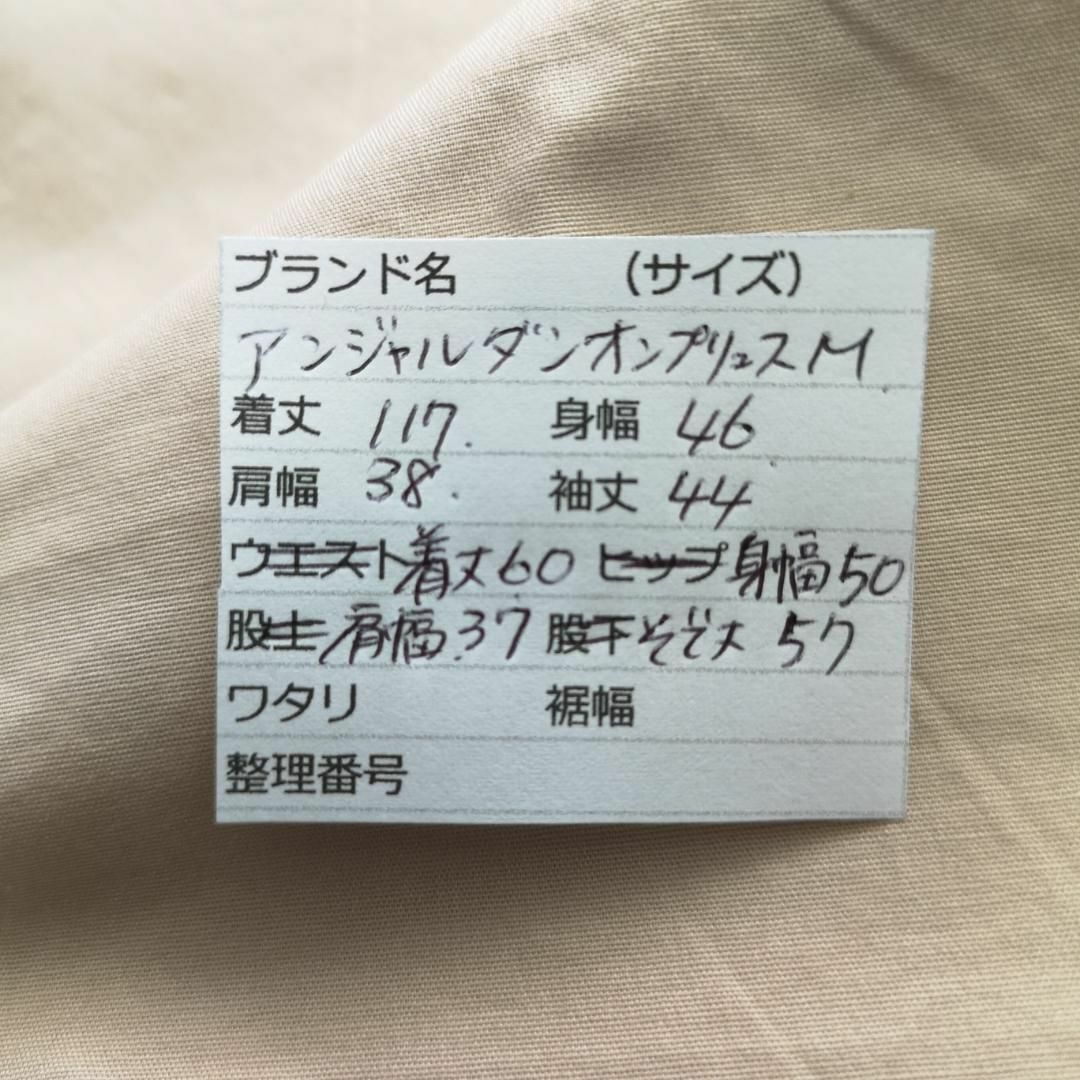 ブランド名 (サイズ)
アンジャルダンオンプリュス M
着丈 117. 身幅 46
肩幅 38. 袖丈 44
ウエスト着丈60 ヒップ身幅50
股上肩幅.37 股下そで丈 57
ワタリ 裾幅
整理番号